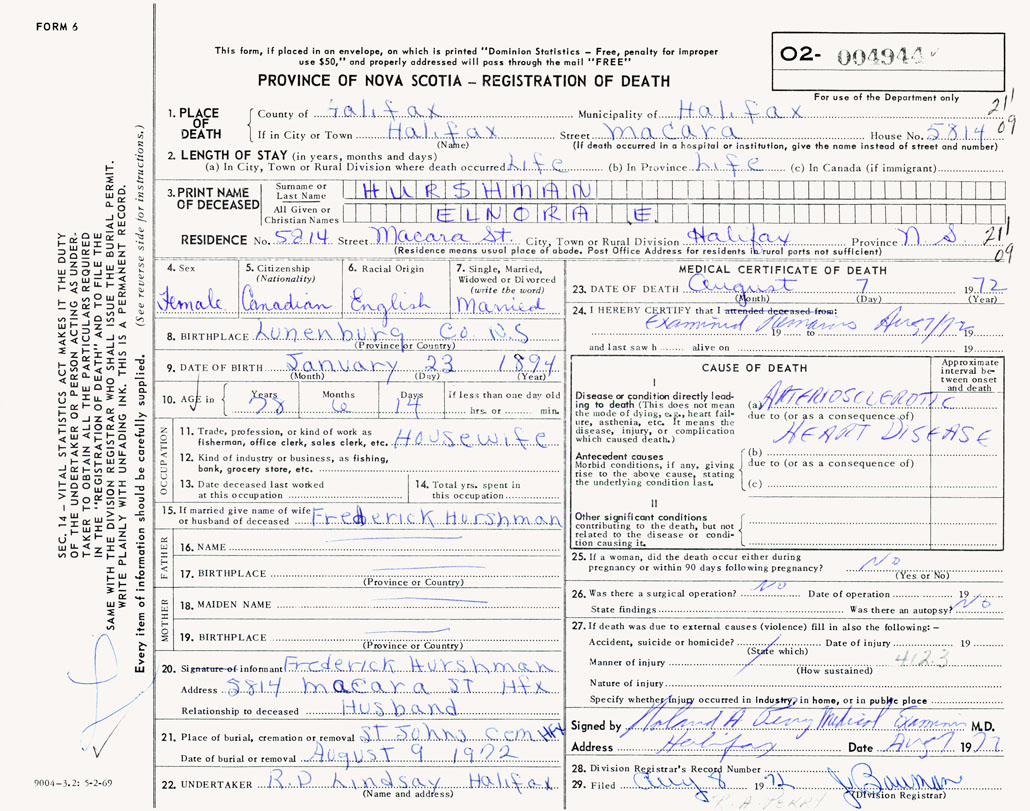 FORM 6
This form, if placed in an envelope, on which is printed "Dominion Statistics – Free, penalty for improper
use $50," and properly addressed will pass through the mail "FREE"
PROVINCE OF NOVA SCOTIA – REGISTRATION OF DEATH
O2- 004944
For use of the Department only
211
09
1. PLACE OF DEATH
County of Halifax Municipality of Halifax
If in City or Town Halifax Street Macara House No. 5814
(Name) (If death occurred in a hospital or institution, give the name instead of street and number)
2. LENGTH OF STAY (in years, months and days)
(a) In City, Town or Rural Division where death occurred Life (b) In Province Life (c) In Canada (if immigrant)
3. PRINT NAME OF DECEASED
Surname or Last Name HURSHMAN
All Given or Christian Names ELNORA E
RESIDENCE No. 5814 Street Macara St. City, Town or Rural Division Halifax Province N S
(Residence means usual place of abode. Post Office Address for residents in rural ports not sufficient)
211
09
4. Sex Female
5. Citizenship (Nationality) Canadian
6. Racial Origin English
7. Single, Married, Widowed or Divorced (write the word) Married
8. BIRTHPLACE Lunenburg Co N.S
(Province or Country)
9. DATE OF BIRTH January 23 1894
(Month) (Day) (Year)
10. AGE in Years 78 Months 6 Days 14 If less than one day old hrs. or min.
OCCUPATION
11. Trade, profession, or kind of work as
fisherman, office clerk, sales clerk, etc. Housewife
12. Kind of industry or business, as fishing,
bank, grocery store, etc.
13. Date deceased last worked
at this occupation
14. Total yrs. spent in
this occupation
15. If married give name of wife
or husband of deceased Frederick Hurshman
FATHER
16. NAME
17. BIRTHPLACE
(Province or Country)
MOTHER
18. MAIDEN NAME
19. BIRTHPLACE
(Province or Country)
20. Signature of informant Frederick Hurshman
Address 5814 Macara ST Hfx
Relationship to deceased Husband
21. Place of burial, cremation or removal ST Johns Cem Hfx
Date of burial or removal August 9 1972
22. UNDERTAKER R.D Lindsay Halifax
(Name and address)
MEDICAL CERTIFICATE OF DEATH
23. DATE OF DEATH August 7 1972
(Month) (Day) (Year)
24. I HEREBY CERTIFY that I attended deceased from:
Examined Remains Aug 7/72
19 19
and last saw h alive on 19
CAUSE OF DEATH
Approximate interval between onset and death
I
Disease or condition directly leading to death (This does not mean the mode of dying, e.g., heart failure, asthenia, etc. It means the disease, injury, or complication which caused death.)
(a) ARTERIOSCLEROTIC
due to (or as a consequence of)
HEART DISEASE
Antecedent causes
Morbid conditions, if any, giving rise to the above cause, stating the underlying condition last.
(b)
due to (or as a consequence of)
(c)
II
Other significant conditions
contributing to the death, but not related to the disease or condition causing it.
25. If a woman, did the death occur either during
pregnancy or within 90 days following pregnancy? No
(Yes or No)
26. Was there a surgical operation? No Date of operation 19
State findings Was there an autopsy? No
27. If death was due to external causes (violence) fill in also the following: –
Accident, suicide or homicide? Date of injury 19
(State which)
Manner of injury 412.3
(How sustained)
Nature of injury
Specify whether injury occurred in Industry, in home, or in public place
Signed by Roland A Perry Medical Examiner M.D.
Address Halifax Date Aug 7 1972
28. Division Registrar's Record Number
29. Filed Aug 8 1972 J. Bowman
(Division Registrar)
R. A. PERRY
SEC. 14 – VITAL STATISTICS ACT MAKES IT THE DUTY
OF THE UNDERTAKER OR PERSON ACTING AS UNDERTAKER TO OBTAIN ALL THE PARTICULARS REQUIRED
IN THE "REGISTRATION OF DEATH" AND TO FILE THE
SAME WITH THE DIVISION REGISTRAR WHO SHALL ISSUE THE BURIAL PERMIT.
WRITE PLAINLY WITH UNFADING INK. THIS IS A PERMANENT RECORD.
Every item of information should be carefully supplied. (See reverse side for instructions.)
9004-3.2: 5-2-69